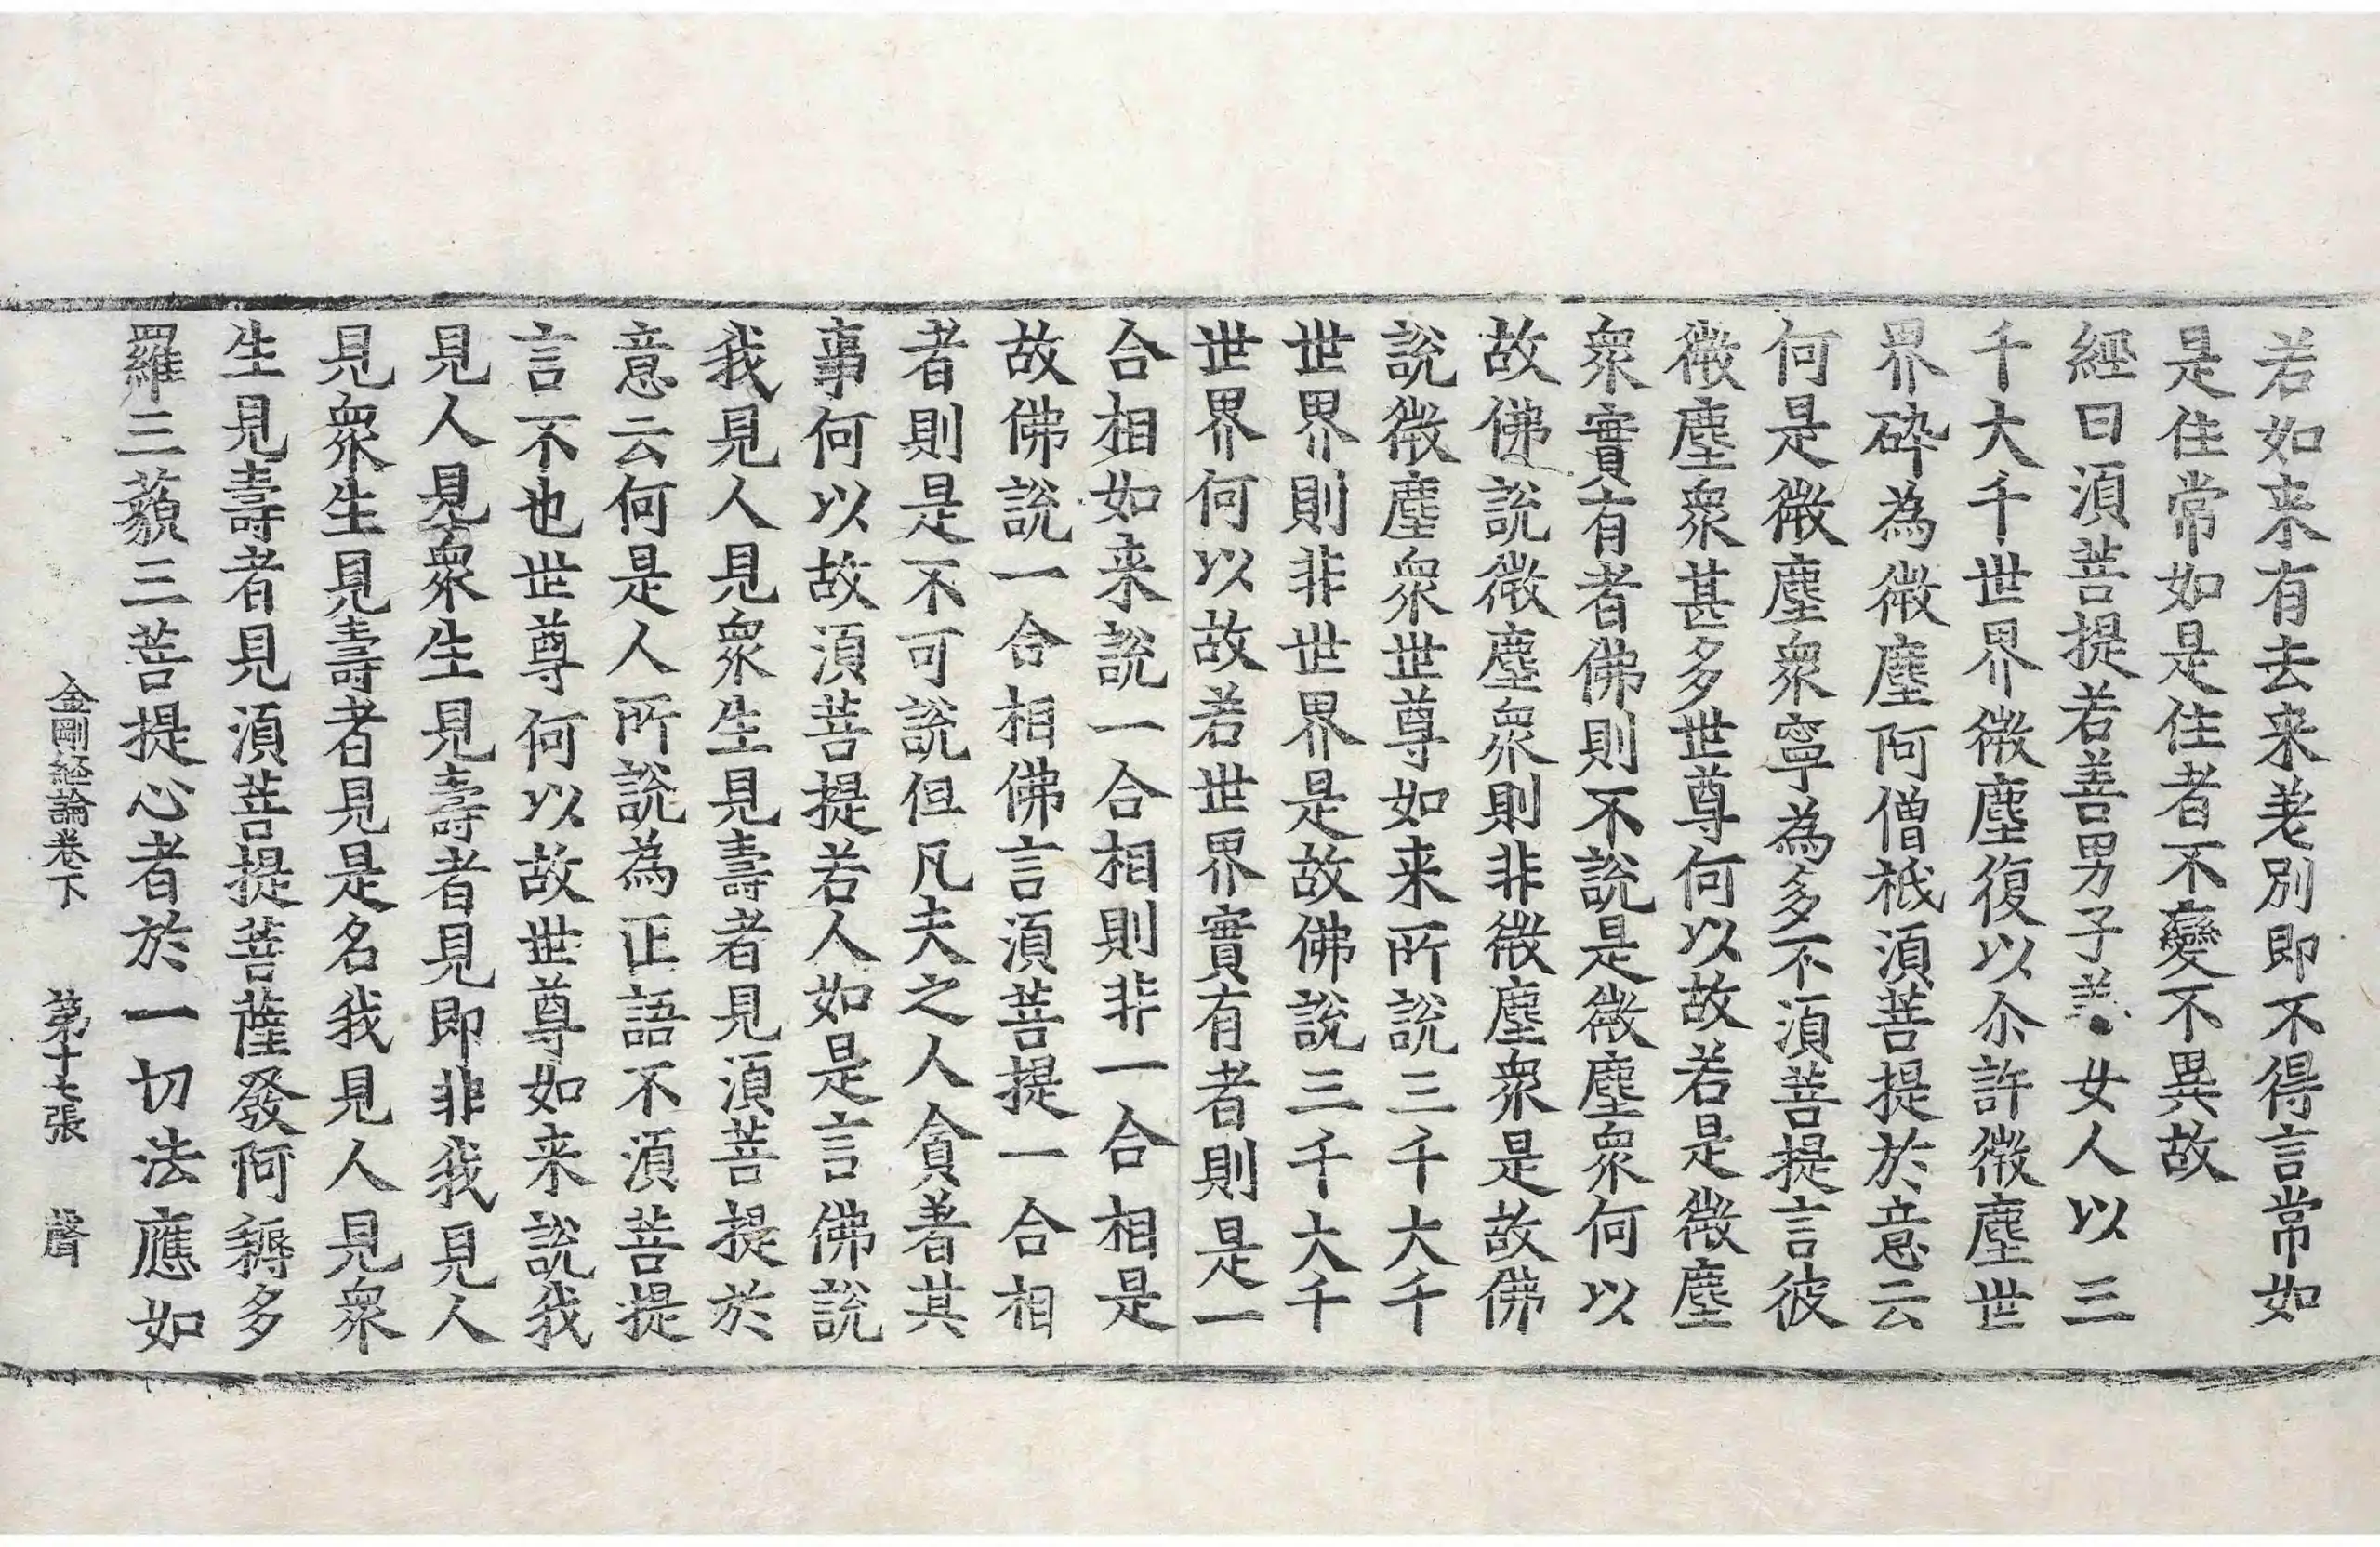 若如来有去来差別即不得言常如
是住常如是住者不變不異故
經曰湏菩提若善男子善女人以三
千大千世界微塵復以尒許微塵世
界碎為微塵阿僧祇湏菩提於意云
何是微塵衆寧為多不湏菩提言彼
微塵衆甚多世尊何以故若是微塵
衆實有者佛則不說是微塵衆何以
故佛說微塵衆則非微塵衆是故佛
說微塵衆世尊如来所說三千大千
世界則非世界是故佛說三千大千
世界何以故若世界實有者則是一
合相如来說一合相則非一合相是
故佛說一合相佛言湏菩提一合相
者則是不可說但凡夫之人貪著其
事何以故湏菩提若人如是言佛說
我見人見衆生見壽者見湏菩提於
意云何是人所說為正語不湏菩提
言不也世尊何以故世尊如来說我
見人見衆生見壽者見即非我見人
見衆生見壽者見是名我見人見衆
生見壽者見湏菩提菩薩發阿耨多
羅三藐三菩提心者於一切法應如
金剛經論卷下 第十七張 聲